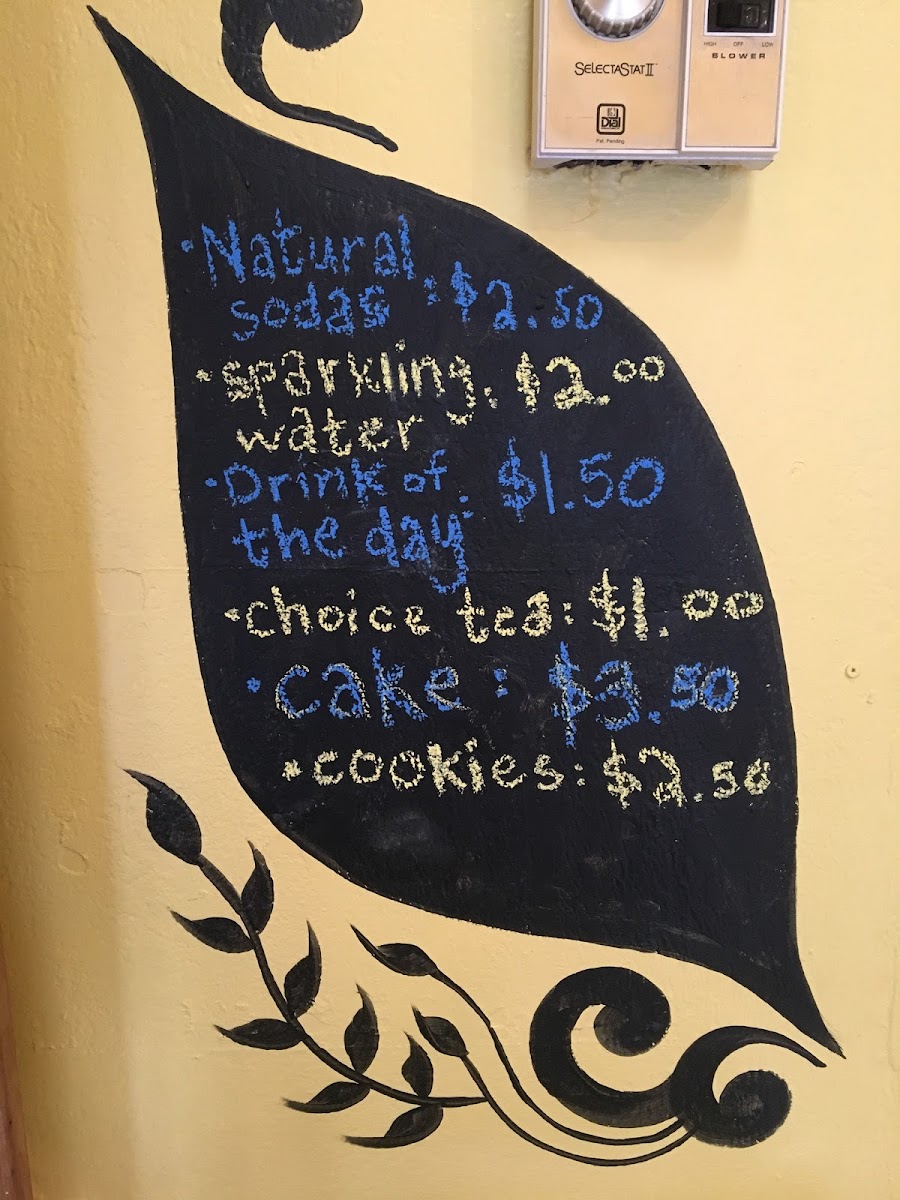 SELECTASTAT II
Dial
Pat. Pending
HIGH OFF LOW
BLOWER
• Natural
sodas : $2.50
• sparkling. $2.00
water
• Drink of : $1.50
the day
• choice tea: $1.00
• cake : $3.50
• cookies: $2.50